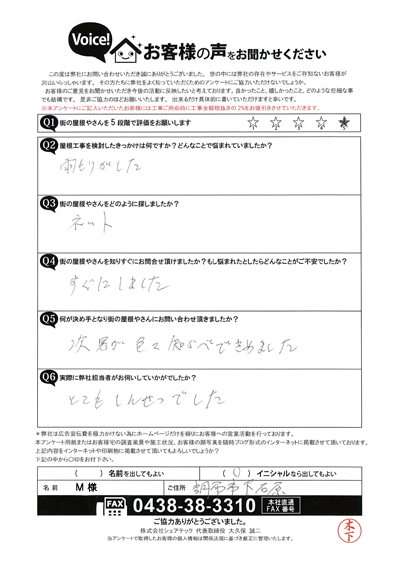 Voice!
お客様の声をお聞かせください
この度は弊社にお問い合わせいただき誠にありがとうございました。世の中には弊社の存在やサービスをご存知ないお客様が
沢山いらっしゃいます。その方たちに弊社をよく知っていただくためのアンケートにご協力いただけないでしょうか。
お客様のご意見をお聞かせいただき今後の活動に反映したいと考えております。良かったこと、嬉しかったこと、どのような些細な事
でも結構です。是非ご協力のほどお願いいたします。出来るだけ具体的に書いていただけますと幸いです。
※本アンケートにご記入いただいたお客様には工事ご用命時に工事金額税抜きの2%をお値引きさせていただきます。
Q1 街の屋根やさんを5段階で評価をお願いします ☆ ☆ ☆ ☆ ★
Q2 屋根工事を検討したきっかけは何ですか?どんなことで悩まれていましたか?
雨もりがした
Q3 街の屋根やさんをどのように探しましたか?
ネット
Q4 街の屋根やさんを知りすぐにお問合せ頂けましたか?もし悩まれたとしたらどんなことがご不安でしたか?
すぐにしました
Q5 何が決め手となり街の屋根やさんにお問い合わせ頂きましたか?
次男が色々知らべてきめました
Q6 実際に弊社担当者がお伺いしていかがでしたか?
とてもしんせつでした
※弊社は広告宣伝費を極力かけない為にホームページだけを頼りにお客様への営業活動を行っております。
本アンケート用紙またはお客様宅の調査風景や施工状況、お客様の顔写真を随時ブログ形式のインターネットに掲載させて頂いております。
上記内容をインターネットや印刷物に掲載させて頂いてもよろしいでしょうか?
下記の中から○印をお付下さい。
( ) 名前を出してもよい ( ○ ) イニシャルなら出してもよい
名前 M 様 ご住所 調布市下石原
FAX 0438-38-3310 本社直通 FAX番号
ご協力ありがとうございました。
株式会社シェアテック 代表取締役 大久保 誠二
当アンケートで取得したお客様の個人情報は関係法規に基づき厳正に管理いたします。
木下